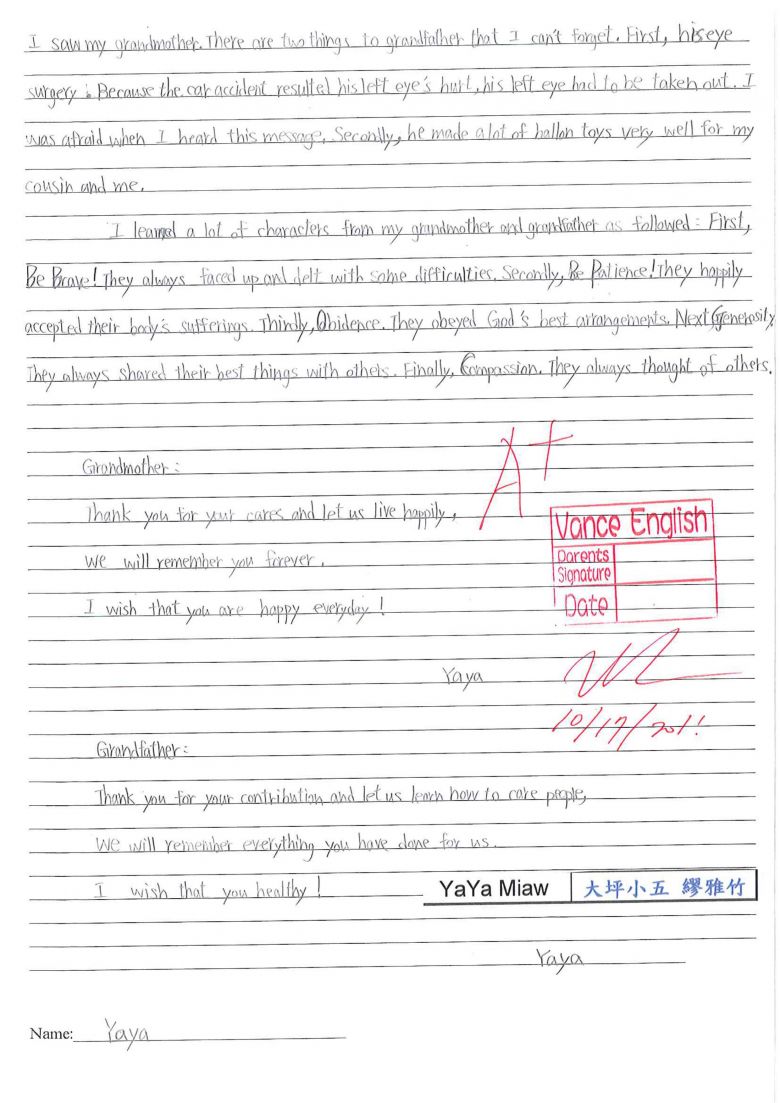 I saw my grandmother. There are two things to grandfather that I can't forget. First, his eye
surgery. Because the car accident resulted his left eye's hurt, his left eye had to be taken out. I
was afraid when I heard this message. Secondly, he made a lot of ballon toys very well for my
cousin and me.
I learned a lot of characters from my grandmother and grandfather as followed: First,
Be Brave! They always faced up and delt with some difficulties. Secondly, Be Patience! They happily
accepted their body's sufferings. Thirdly, Obidence. They obeyed God's best arrangements. Next Generosity
They always shared their best things with others. Finally, Compassion. They always thought of others.
A+
Grandmother:
Thank you for your cares and let us live happily,
Vance English
We will remember you forever.
Parents Signature
I wish that you are happy everyday!
Date
Yaya
10/17/2011
Grandfather:
Thank you for your contribution and let us learn how to care people,
We will remember everything you have done for us.
I wish that you healthy!
YaYa Miaw 大坪小五 繆雅竹
Yaya
Name: Yaya